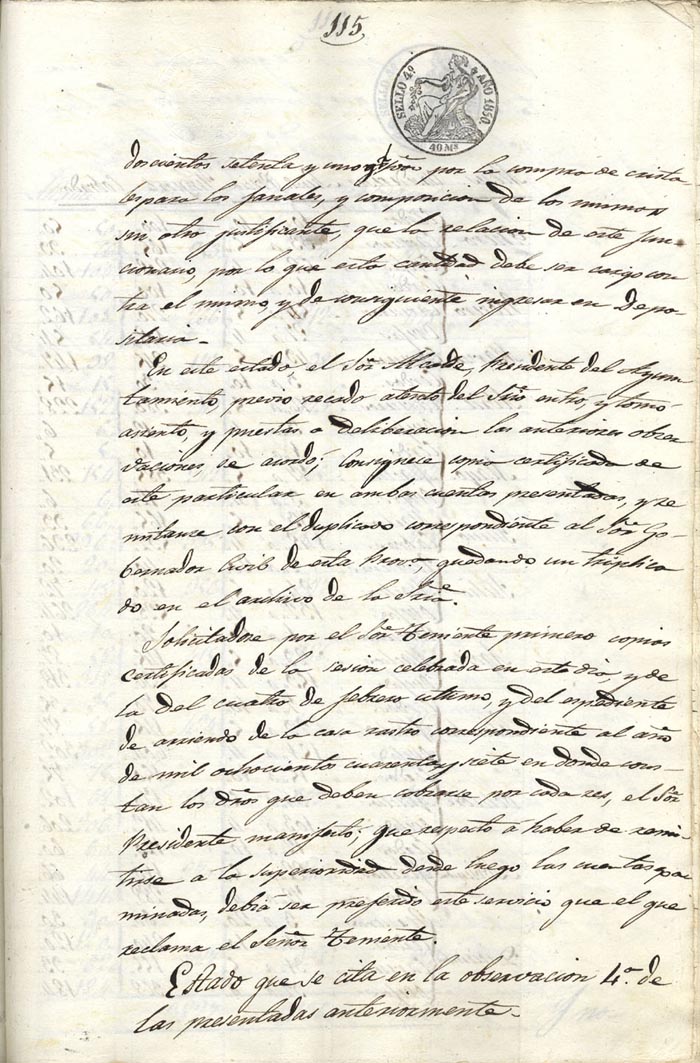 115,
SELLO 4º AÑO 1850
40 Ms
doscientos setenta y uno por la compra de crista
les para los faroles, y composicion de los mismos
sin otro justificante, que la relacion de este fun
cionario, por lo que esta cantidad debe ser cargo con
tra el mismo, y de consiguiente ingresar en Depo-
sitaria.
En este estado, el Sor Alcalde, Presidente del Ayun
tamiento, previo recado atento del Srio entró, y tomó
asiento, y puestas a deliberacion las anteriores obser
vaciones, se acordó; Consignese copia certificada de
este particular en ambas cuentas presentadas, y re
mitanse con el duplicado correspondiente al Sor Go-
bernador Civil de esta Prova, quedando un triplica
do en el archivo de la Sria.
Solicitadose por el Sor Teniente primero copias
certificadas de la sesion celebrada en este dia, y de
la del cuatro de febrero ultimo, y del espediente
de arriendo de la casa rastro correspondiente al año
de mil ochocientos cuarenta y siete en donde cons-
tan los dros que deben cobrarse por cada res, el Sor
Presidente manifestó; que respecto á haber de remi
tirse a la superioridad desde luego las cuentas exa
minadas, debia ser preferido este servicio que el que
reclama el Señor Teniente.
Estado que se cita en la observacion 4ª de
las presentadas anteriormente.